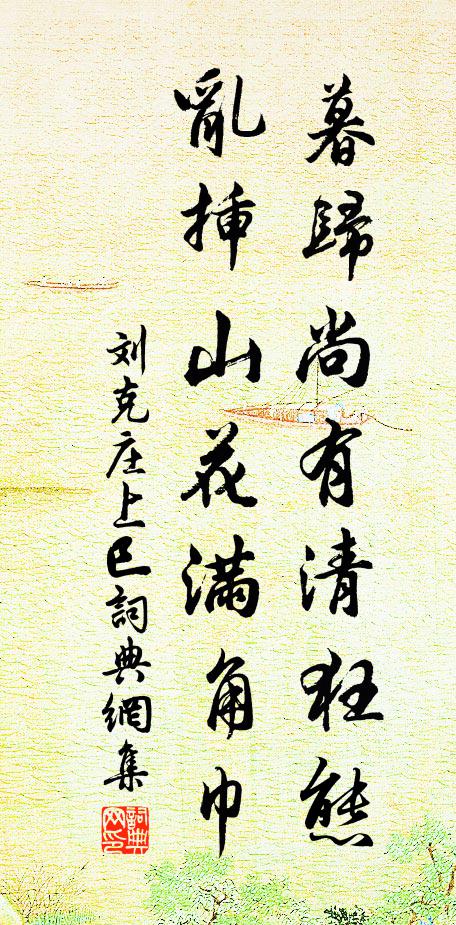 暮歸尚有清狂態
亂揷山花滿角巾
刘克庄上巳詞典網集
詞典
网印